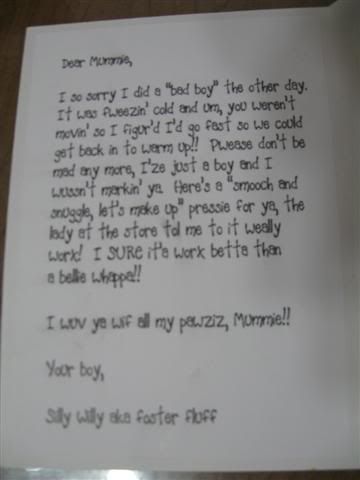 Dear Mummie,
I so sorry I did a "bad boy" the other day.
It was fweezin' cold and um, you weren't
movin' so I figur'd I'd go fast so we could
get back in to warm up!! Pwease don't be
mad any more, I'ze just a boy and I
wussn't markin' ya. Here's a "smooch and
snuggle, let's make up" pressie for ya, the
lady at the store tol me to it weally
work! I SURE it'a work betta than
a bellie whappa!!
I wuv ya wif all my pawziz, Mummie!!
Your boy,
Silly Willy aka foster fluff